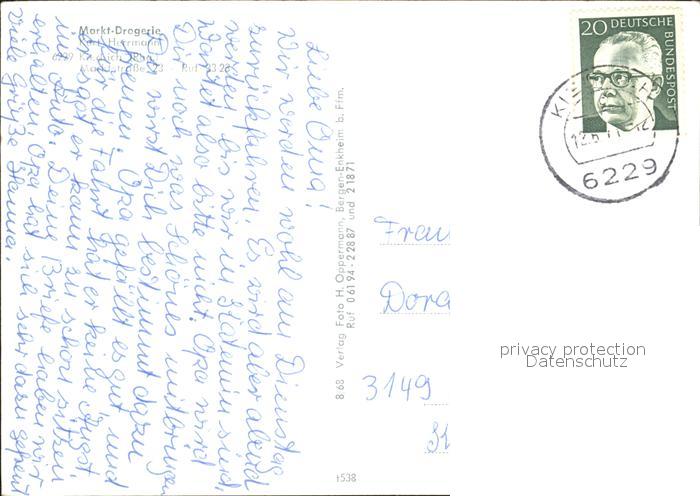 Markt-Drogerie
Kurt Herrmann
Marktstraße 23 Ruf 33 23
Liebe Oma!
Wir werden wohl am Dienstag
zurückfahren. Es wird aber abend
werden, bis wir in sind,
wartet also bitte nicht. Opa wird
Dir noch was Schönes mitbringen
Du wirst Dich bestimmt dazu
freuen. Opa gefällt es gut und
für die Fahrt hat er keine Angst
er sagt er kann zu schön sitzen
im Auto. Deine Briefe haben wir
erhalten, Opa hat sie sehr daran gefreut
Viele Grüße Hanna.
8 68 Verlag Foto H. Oppermann, Bergen-Enkheim b. Ffm.
Ruf 0 61 94 - 2 28 87 und 2 18 71
20 DEUTSCHE BUNDESPOST
6229
Frau
Dora
3149
privacy protection
Datenschutz
t538